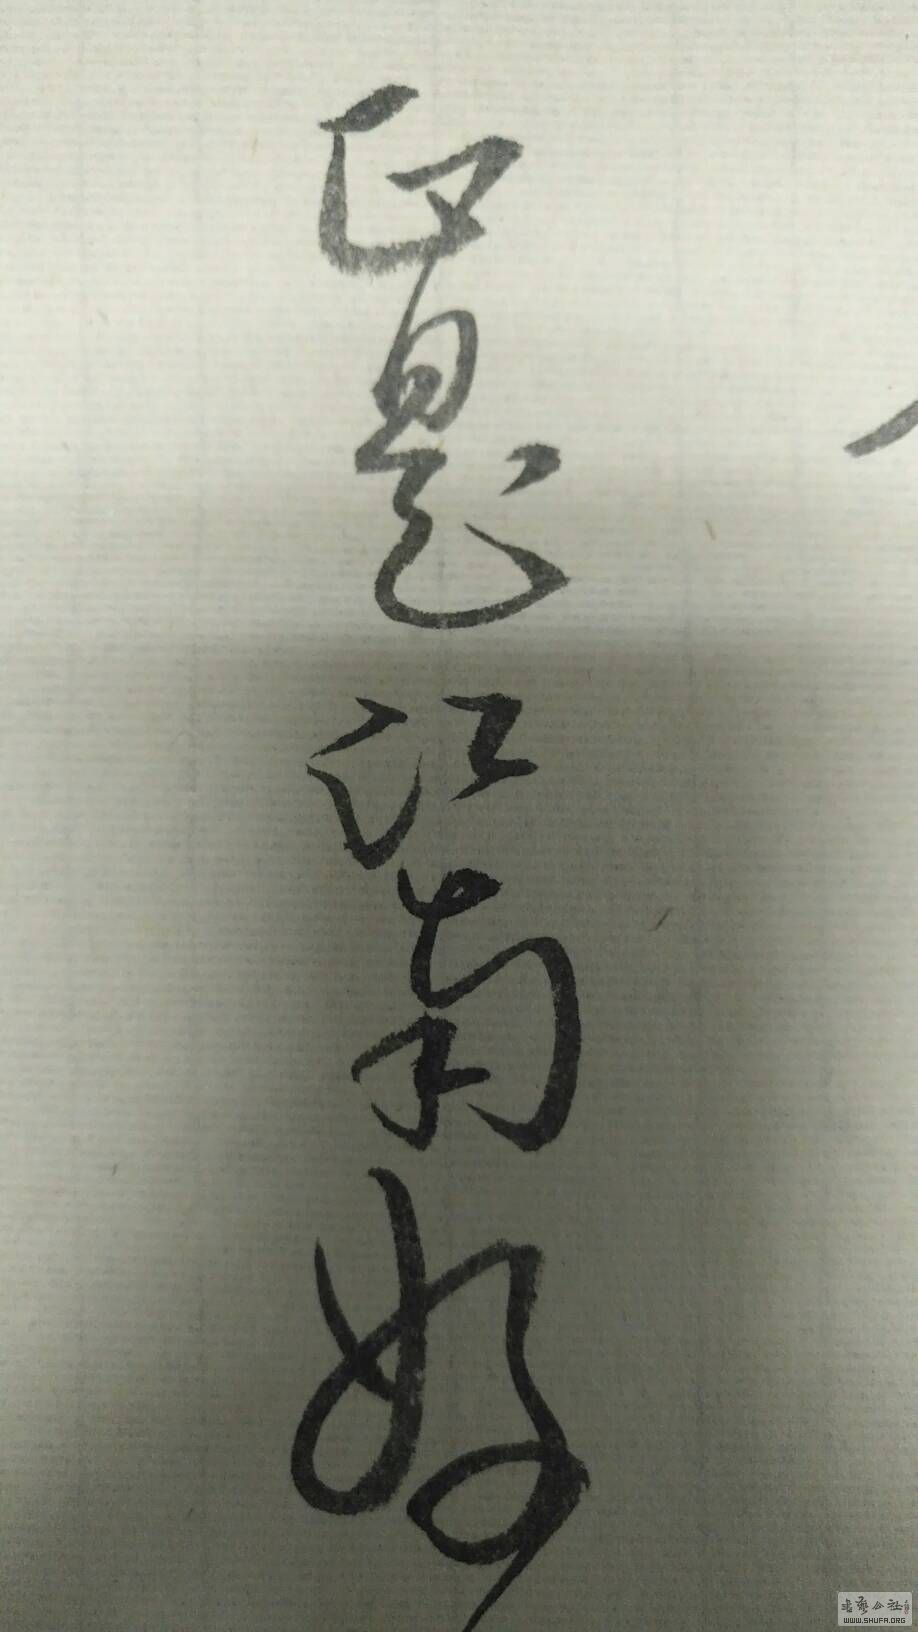 正是江南好
书艺公社
WWW.SHUFA.ORG